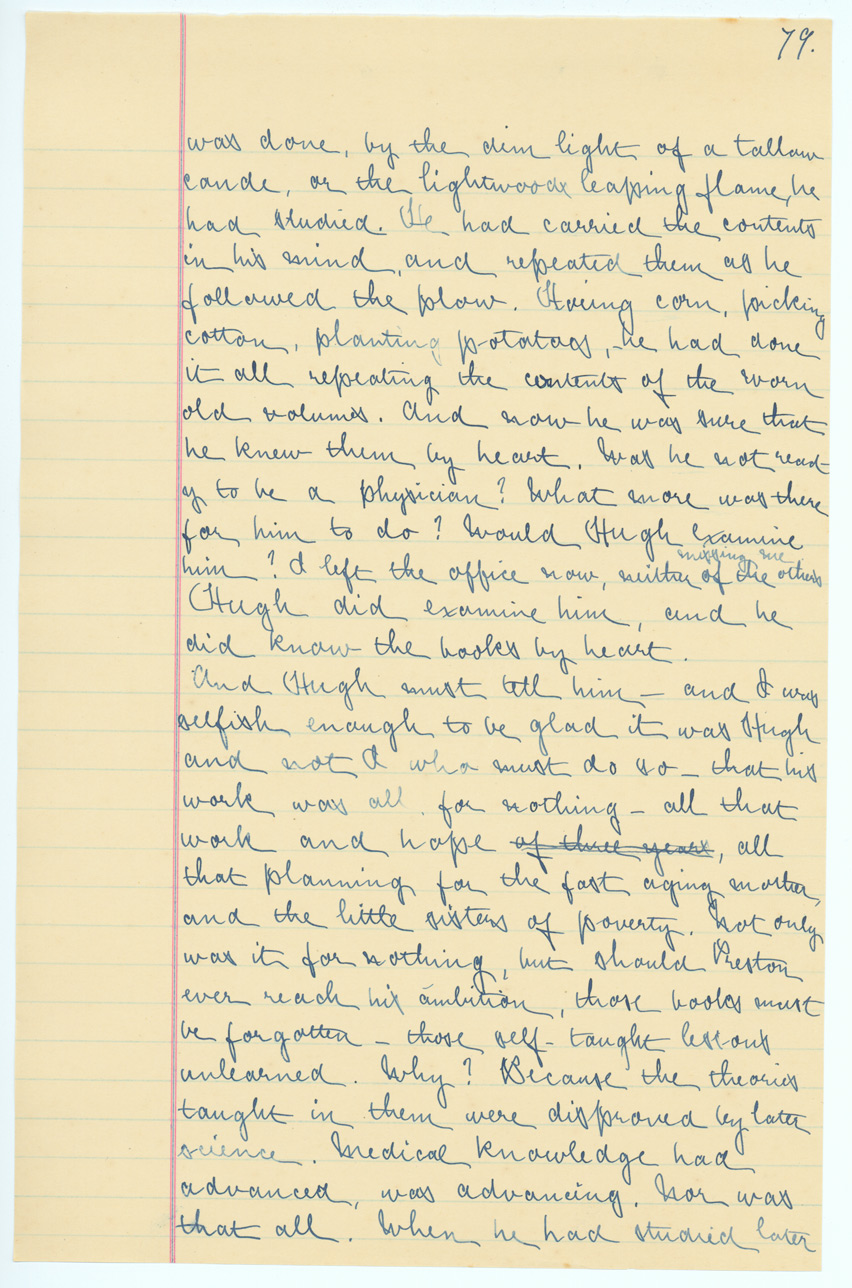 79.
was done, by the dim light of a tallow
cande, or the lightwoods leaping flame, he
had studied. He had carried the contents
in his mind, and repeated them as he
followed the plow. Hoeing corn, picking
cotton, planting potatoes, - he had done
it all repeating the contents of the worn
old volumes. And now he was sure that
he knew them by heart. Was he not read-
y to be a physician? What more was there
for him to do? Would Hugh examine
missing me
him? I left the office now, neither of the others
Hugh did examine him, and he
did know the books by heart.
And Hugh must tell him - and I was
selfish enough to be glad it was Hugh
and not I who must do so - that his
work was all for nothing - all that
work and hope of three years, all
that planning for the fast aging mother,
and the little sisters of poverty. Not only
was it for nothing, but should Preston
ever reach his ambition, those books must
be forgotten - those self-taught lessons
unlearned. Why? Because the theories
taught in them were disproved by later
science. Medical knowledge had
advanced, was advancing. Nor was
that all. When he had studied later